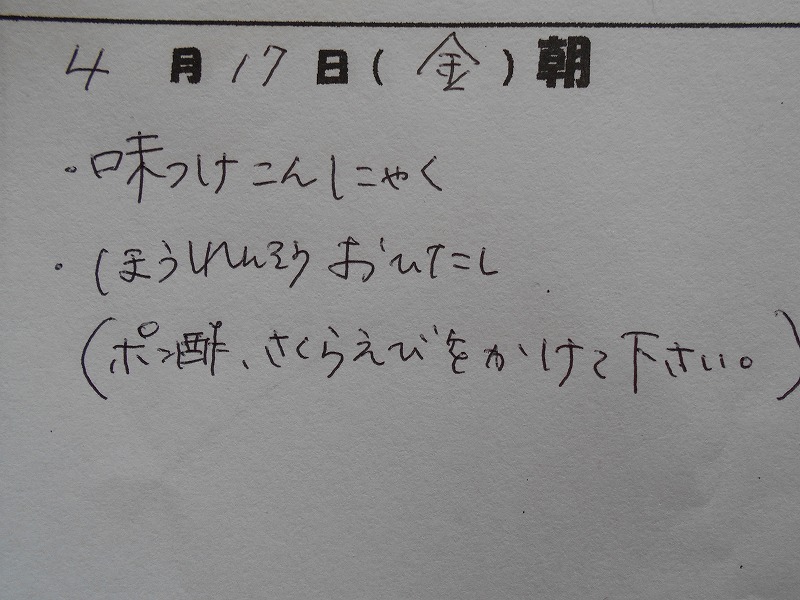 4月17日(金)朝
・味つけこんにゃく
・ほうれんそうおひたし
(ポン酢、さくらえびをかけて下さい。)